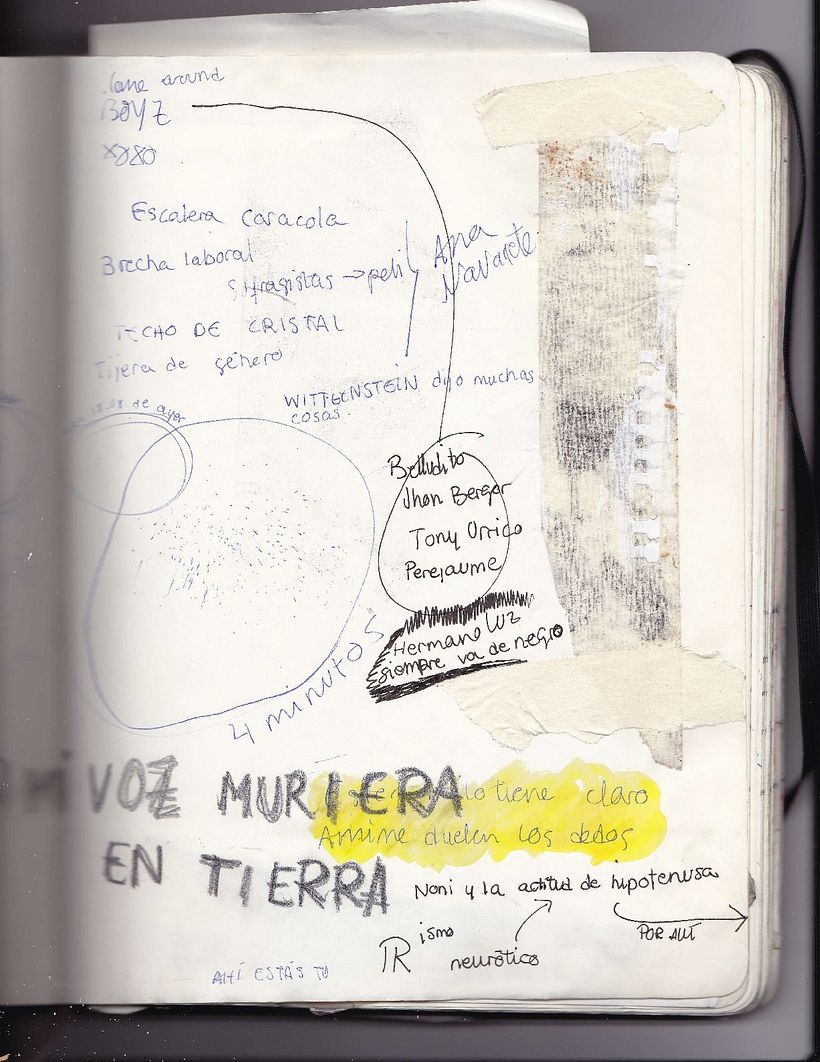 around
BOYZ
Escalera caracola
Brecha laboral
Sufragistas → peli
Ana
Navarrete
TECHO DE CRISTAL
Tijera de género
WITTGENSTEIN dijo muchas
cosas.
de ayer
Belludito
Jhon Berger
Tony Orrico
Perejaume
Hermano LUZ
siempre va de negro
4 minutos
MI VOZ MURIERA
EN TIERRA
lo tiene claro
A mi me duelen los dedos
Noni y la actitud de hipotenusa
POR AHÍ
IR ismo
neurótico
AHÍ ESTÁS TÚ